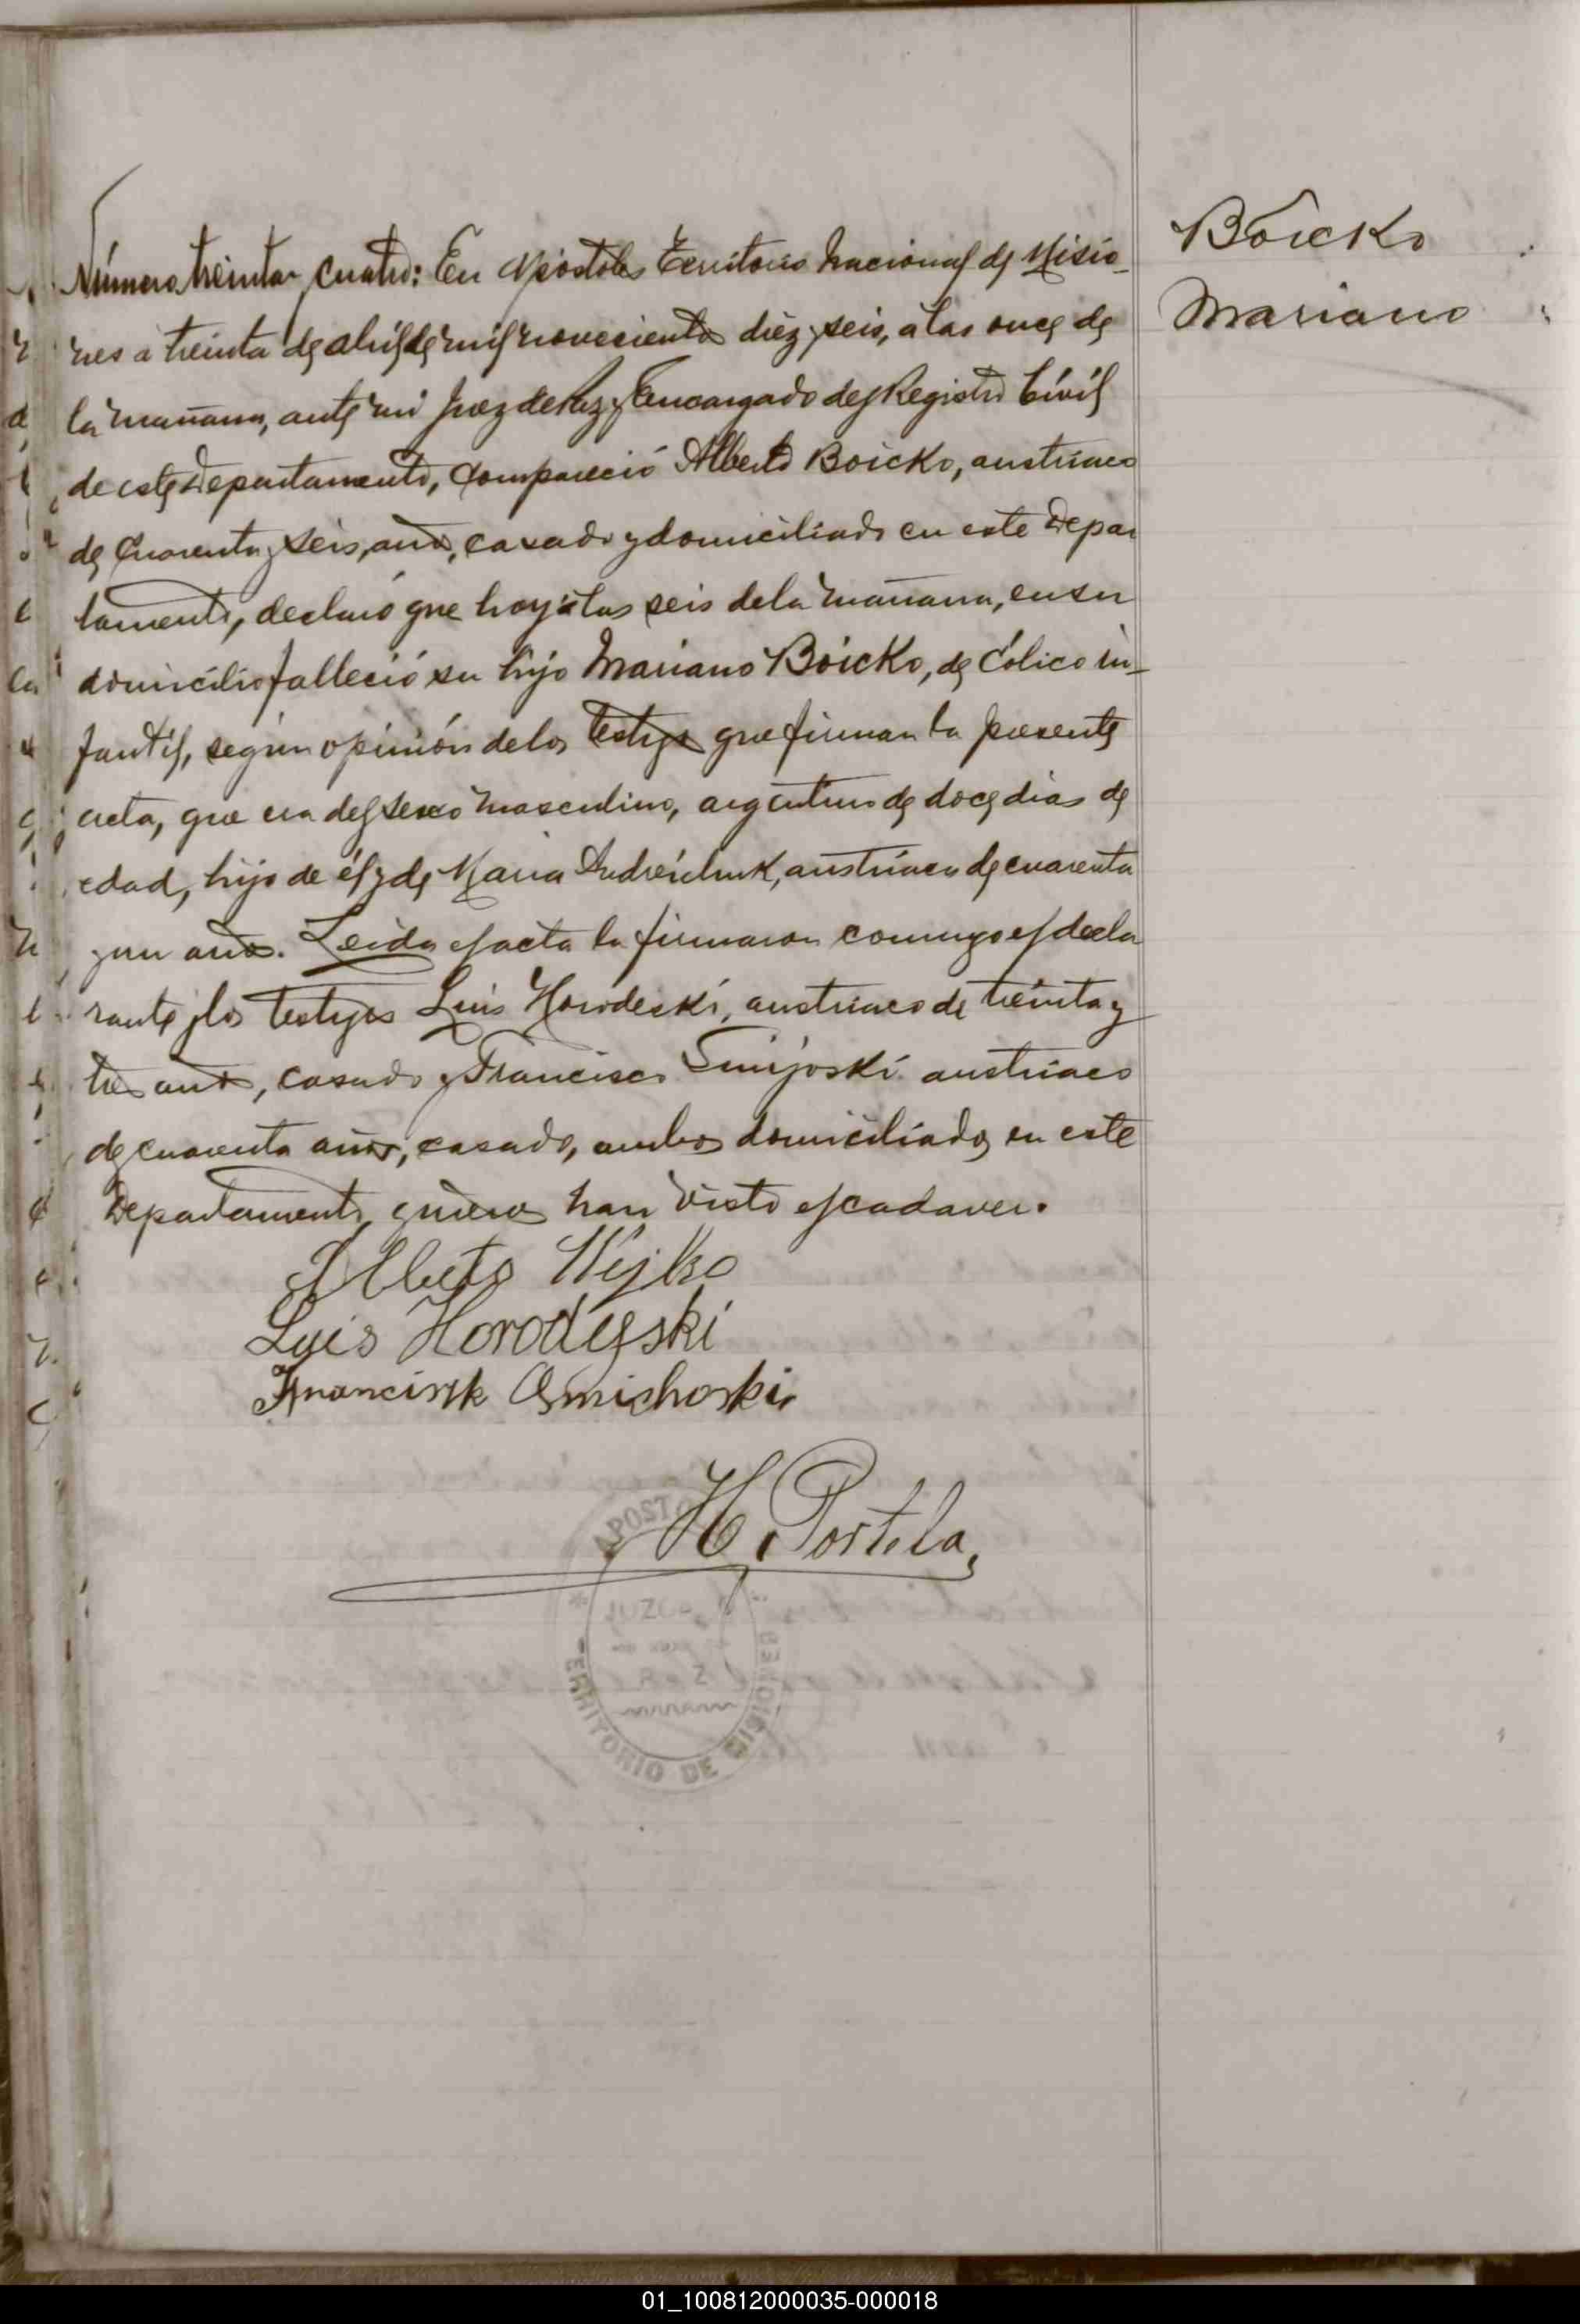 Boicko
Mariano
Número treinta y cuatro: En Apóstoles Territorio Nacional de Misio-
nes a treinta de abril de mil novecientos diez y seis, a las once de
la mañana, ante mi Juez de Paz y Encargado del Registro Civil
de este Departamento, compareció Alberto Boicko, austriaco
de cuarenta y seis años, casado y domiciliado en este Depar
tamento, declaró que hoy a las seis de la mañana, en su
domicilio falleció su hijo Mariano Boicko, de Cólico in-
fantil, según opinión de los testigos que firman la presente
acta, que era del sexo masculino, argentino de doce dias de
edad, hijo de él y de Maria Andreichuk, austriaca de cuarenta
y un años. Leida el acta la firmaron conmigo el decla
rante y los testigos Luis Horodeski, austriaco de treinta y
tres años, casado y Francisco Smijoski austriaco
de cuarenta años, casado, ambos domiciliados en este
Departamento, quienes han visto el cadaver.
Alberto Wijko
Luis Horodyski
Francisk Smichoski
H. Portela
APOSTOLES
JUZGADO
PAZ
TERRITORIO DE MISIONES
01_100812000035-000018